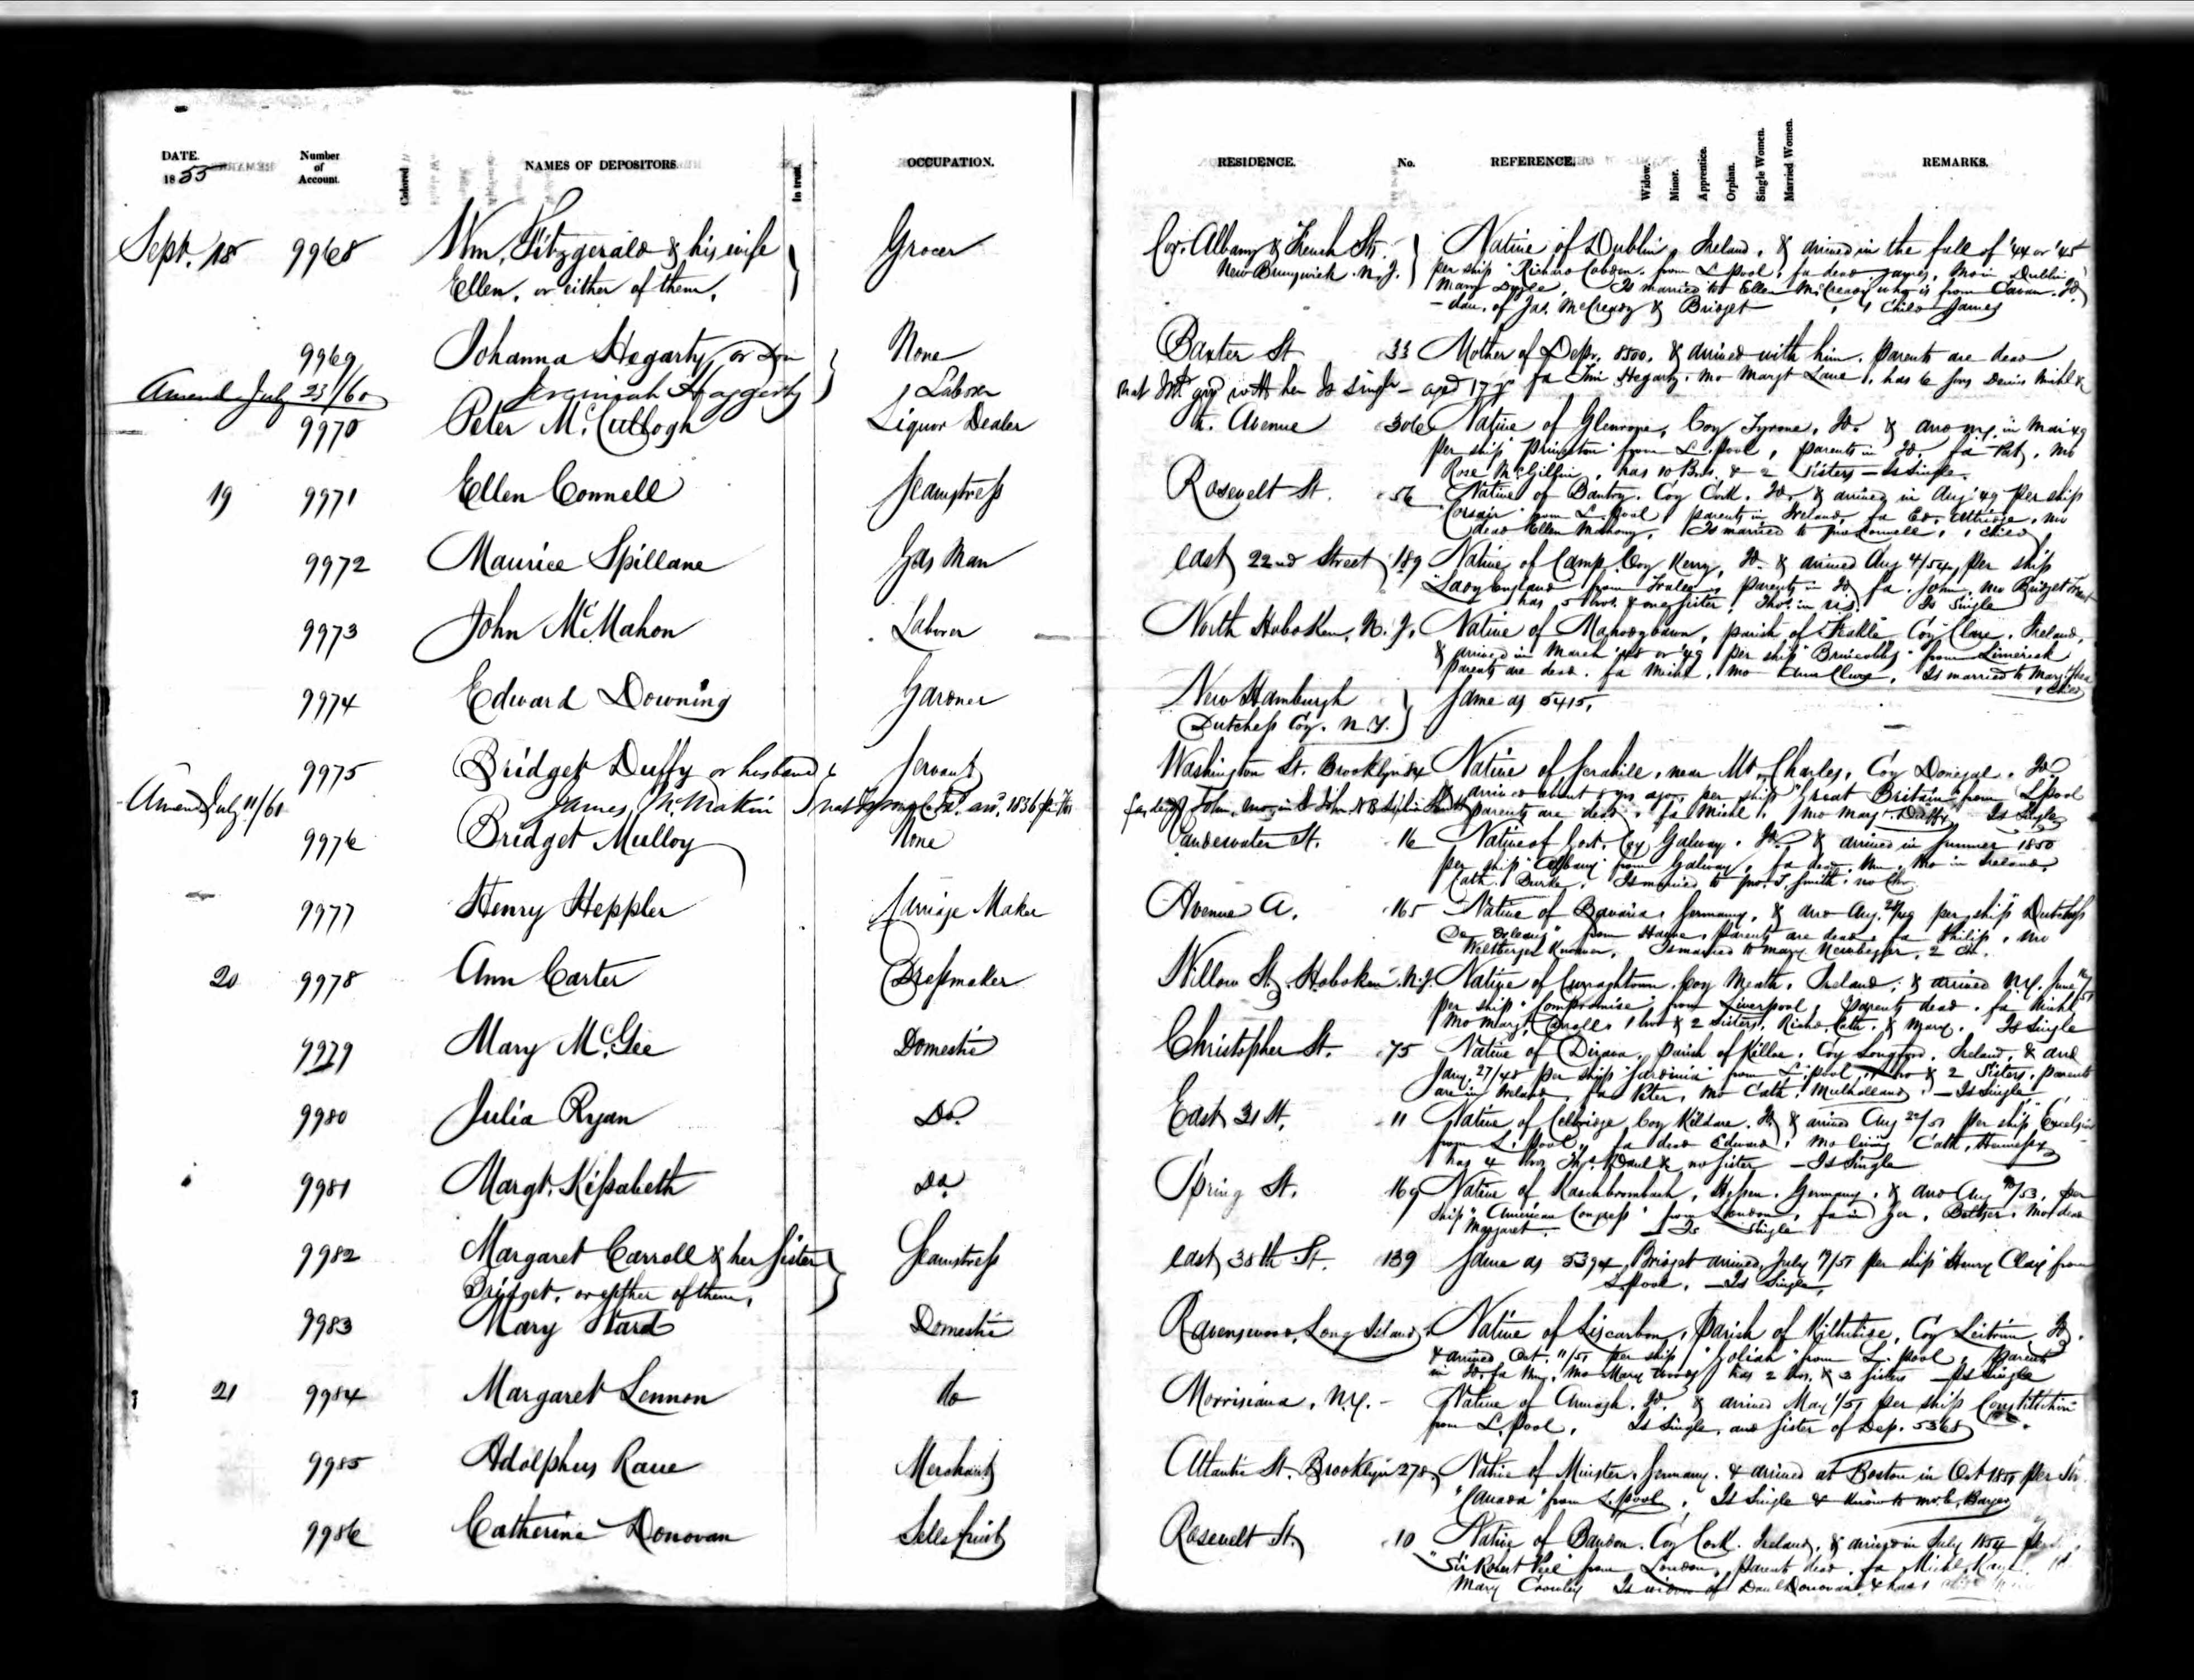 DATE. 1855
Number of Account.
Colored
NAMES OF DEPOSITORS.
In trust.
OCCUPATION.
RESIDENCE.
No.
REFERENCE.
Widow.
Minor.
Apprentice.
Orphan.
Single Women.
Married Women.
REMARKS.
Sept. 18 9968 Wm. Fitzgerald & his wife Grocer Cor. Albany & French Sts. Native of Dublin, Ireland, & arrived in the fall of '44 or '45
Ellen, or either of them, New Brunswick N.J. per ship "Richard Cobden" from L.pool, fa dead James, Mo in Dublin
Mary Doyle, Is married to Ellen McCready who is from Cavan. Id
- dau. of Jas. McCready & Bridget, 1 Child James
9969 Johanna Hegarty, or Son None Baxter St 33 Mother of Depr. 8500, & arrived with him. parents are dead
Amend July 23/60 Jeremiah Haggerty Laborer with her Is single - aged 17 fa Tim Hegarty, Mo Margt Lane, has 6 sons Denis Michl &
9970 Peter McCullogh Liquor Dealer Avenue 306 Native of Coy Tyrone, Id. & arrd in Mar 49
per ship "Princeton" from L.pool, parents in Id. fa Pat, Mo
Rose McGilpin, has 10 Bros. & 2 Sisters - Is Single.
19 9971 Ellen Connell Seamstress Rosevelt St. 56 Native of Bantry. Coy Cork. Id. & arrived in Aug '49 per ship
"Corsair" from L.pool, parents in Ireland, fa Ed. Attridge, Mo
dead Ellen Mahony, Is married to Connell, 1 child
9972 Maurice Spillane Gas Man east 22nd Street 189 Native of Camp. Coy Kerry, Id. & arrived Aug 4/54, per ship
"Lady England" from Tralee, parents in Id fa John, Mo Bridget
has 5 bros. & one sister. Tho. in U.S. Is Single
9973 John McMahon Laborer North Hoboken, N.J. Native of parish of Feakle Coy Clare. Ireland,
& arrived in March '48 or '49 per ship from Limerick
parents are dead. fa Michl, Mo Ann Clune, Is married to Mary
1 Child
9974 Edward Downing Gardner New Hamburgh Same as 5415,
Dutchess Coy. N.Y.
9975 Bridget Duffy or husband Servant Washington St. Brooklyn 84 Native of near Mt. Charles, Coy Donegal. Id
Amend July 11/60 James arrived about 8 yrs ago, per ship "Great Britain" from L.pool
parents are dead, fa Michl, Mo Margt. Duffy Is Single
9976 Bridget Mulloy None Vandewater St. 16 Native of Gort. Coy Galway. Id. & arrived in Summer 1850
per ship "Albany" from Galway, fa dead, Wm, Mo in Ireland,
Cath. Burke, Is married to Jno. J. Smith, no Chn.
9977 Henry Heppler Carriage Maker Avenue A. 165 Native of Bavaria, Germany, & arrd Aug. 28/49 per ship "Dutchess
De Orleans" from Havre, Parents are dead, fa Philip, Mo
Is married to Mary 2 Ch.
20 9978 Ann Carter Dressmaker Willow St. Hoboken N.J. Native of Curraghtown. Coy Meath. Ireland; & arrived N.Y. June /51
per ship "Compromise" from Liverpool, Parents dead, fa Michl
Mo Margt. Carroll, 1 bro & 2 sisters, Richd. Cath. & Mary. Is Single
9979 Mary McGee Domestic Christopher St. 75 Native of Parish of Killoe. Coy Longford. Ireland, & arrd
Jany. 27/48 per ship "Sardinia" from L.pool, bro & 2 Sisters, parents
are in Ireland, fa Peter, Mo Cath. Mulholland, - Is Single
9980 Julia Ryan Do. East 31 St. 11 Native of Celbridge Coy Kildare. Id. & arrived Aug 22/51 per ship "Excelsior"
from L.pool, fa dead Edward, Mo living Cath. Hennessy
has 4 bros no sister - Is Single
9981 Margt. Kissabeth Do. Spring St. 169 Native of Hessen. Germany, & arrd Aug /53, per
ship "American Congress" from London, fa in Ger. Mo dead
Margaret. - Is Single
9982 Margaret Carroll & her Sister Seamstress east 38th St. 139 Same as 5394, Bridget arrived July 7/51 per ship "Henry Clay" from
Bridget, or either of them, L.pool, - Is Single,
9983 Mary Ward Domestic Ravenswood, Long Island, Native of Liscarbon, Parish of Coy Leitrim, Id.
& arrived Oct. 11/51 per ship "Goliah" from L.pool, Parents
in Id. fa Wm. Mo Mary has 2 bros. & 3 sisters - Is Single
21 9984 Margaret Lennon do Morrisiana, N.Y. - Native of Armagh. Id. & arrived May 1/51 per ship "Constitution"
from L.pool, Is Single, and Sister of Dep. 5368
9985 Adolphus Raue Merchant Atlantic St. Brooklyn 278. Native of Minster, Germany. & arrived at Boston in Oct 1851 per Str.
"Canada" from L.pool, Is Single &
9986 Catherine Donovan Sells fruit Rosevelt St. 10 Native of Bandon. Coy Cork. Ireland, & arrived in July 1854 per
"Sir Robert Peel" from London, Parents dead, fa Michl
Mary Crowley Is widow of Danl Donovan, & has 1